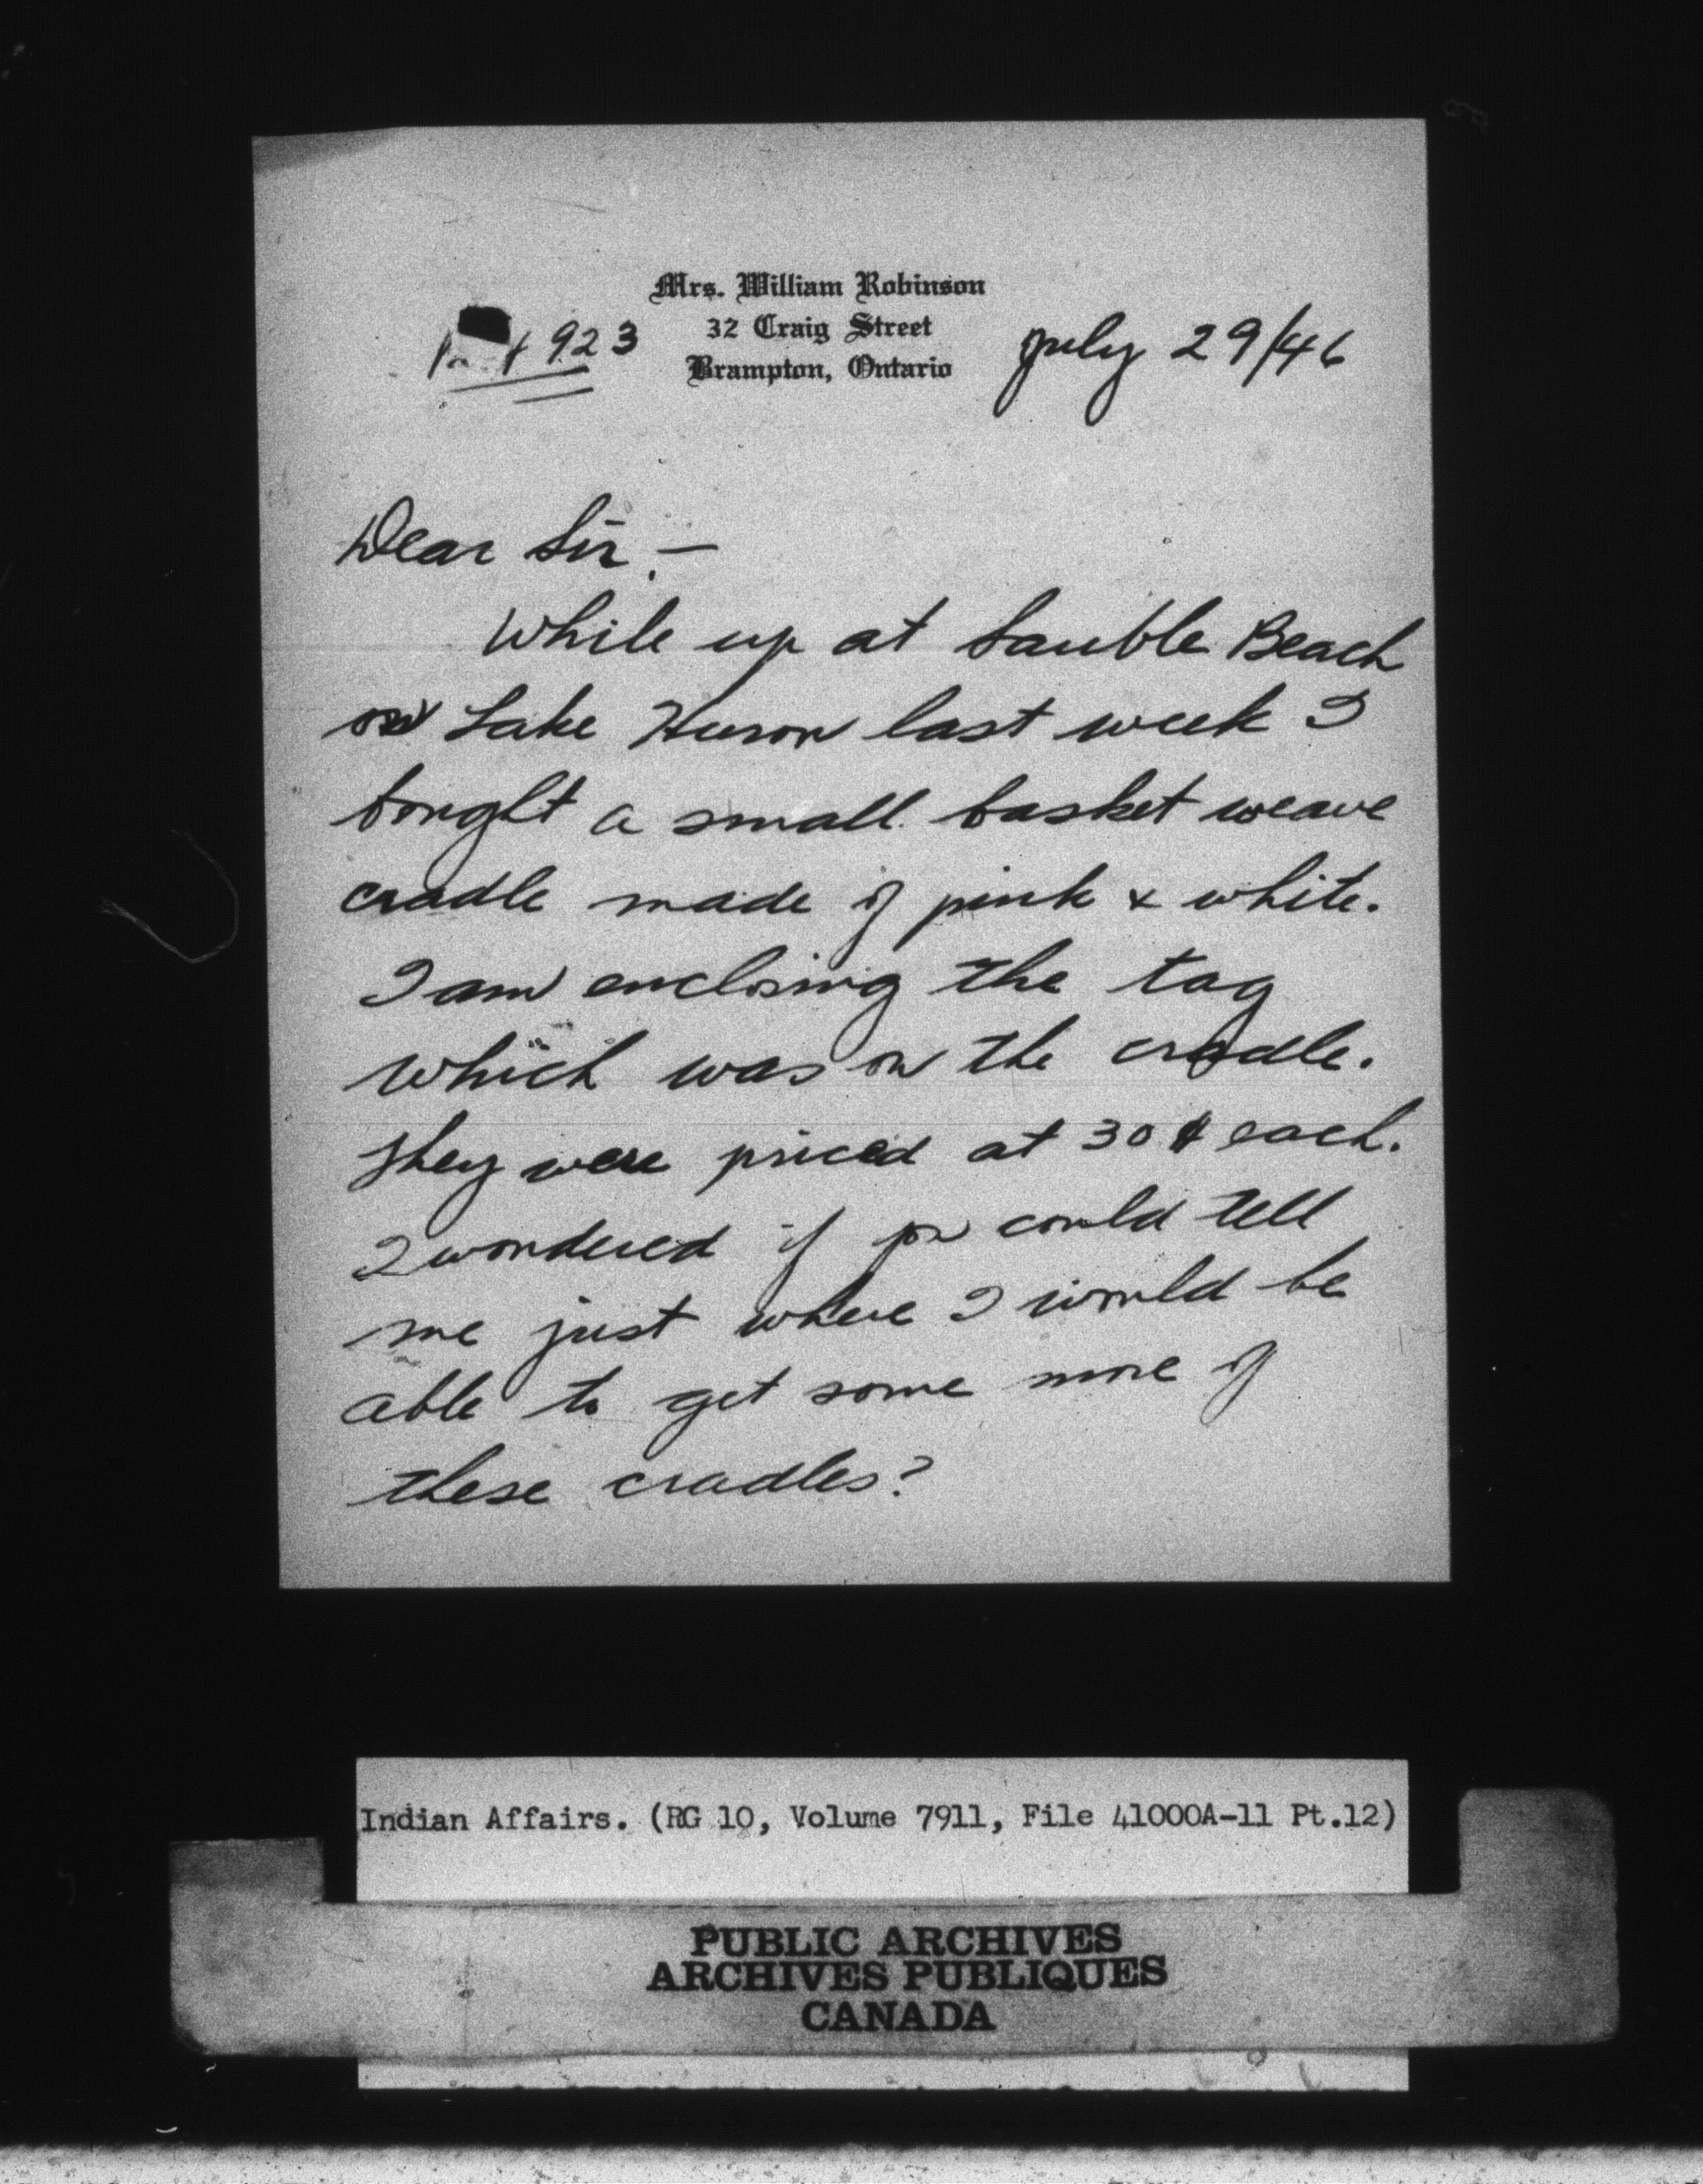 Mrs. William Robinson
32 Craig Street
Brampton, Ontario
923
July 29/46
Dear Sir,—
While up at Sauble Beach
on Lake Huron last week I
bought a small basket weave
cradle made of pink & white.
I am enclosing the tag
which was on the cradle.
They were priced at 30¢ each.
I wondered if you could tell
me just where I would be
able to get some more of
these cradles?
Indian Affairs. (RG 10, Volume 7911, File 41000A-11 Pt.12)
PUBLIC ARCHIVES
ARCHIVES PUBLIQUES
CANADA